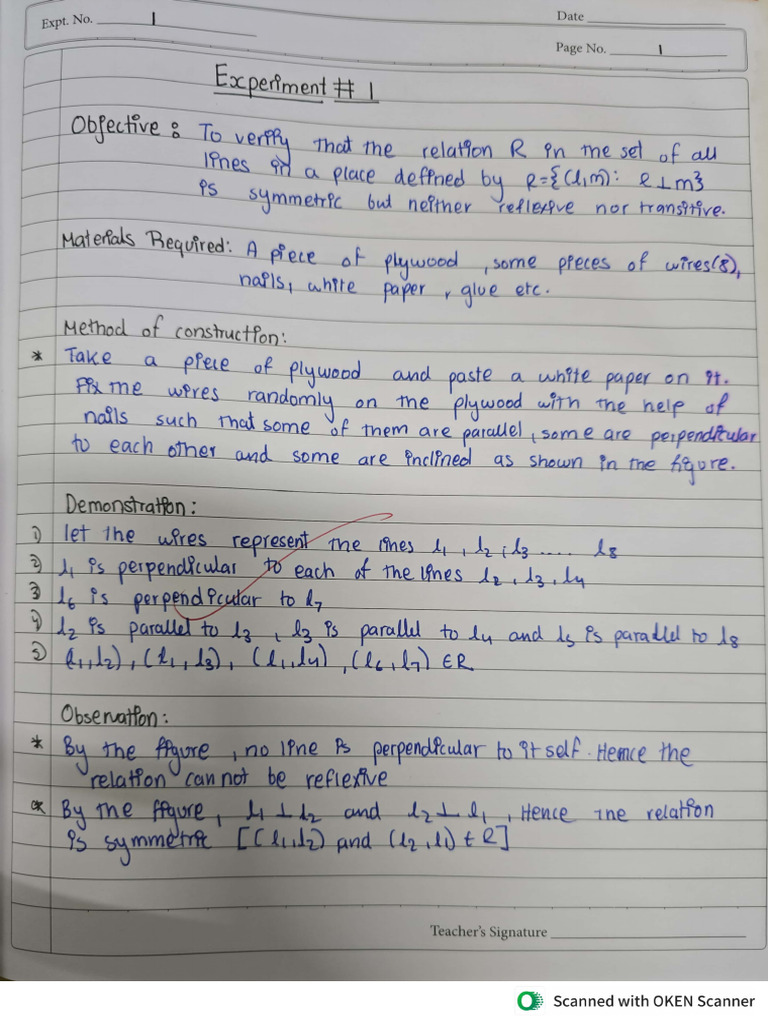 Expt. No. 1
Date
Page No. 1
Experiment # 1
Objective : To verify that the relation R in the set of all
lines in a place defined by R={(l,m): l⊥m}
is symmetric but neither reflexive nor transitive.
Materials Required: A piece of plywood, some pieces of wires(8),
nails, white paper, glue etc.
Method of construction:
* Take a piece of plywood and paste a white paper on it.
Fix the wires randomly on the plywood with the help of
nails such that some of them are parallel, some are perpendicular
to each other and some are inclined as shown in the figure.
Demonstration:
1) let the wires represent the lines l1, l2, l3 .... l8
2) l1 is perpendicular to each of the lines l2, l3, l4
3) l6 is perpendicular to l7
4) l2 is parallel to l3, l3 is parallel to l4 and l5 is parallel to l8
5) (l1,l2), (l1,l3), (l1,l4), (l6,l7) ∈R
Observation:
* By the figure, no line is perpendicular to it self. Hence the
relation can not be reflexive
* By the figure, l1⊥l2 and l2⊥l1, Hence the relation
is symmetric [(l1,l2) and (l2,l1) ∈ R]
Teacher's Signature
Scanned with OKEN Scanner